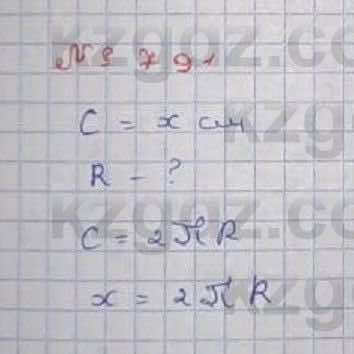 № 791
C = x см
R - ?
C = 2πR
x = 2πR
kzgnz.com